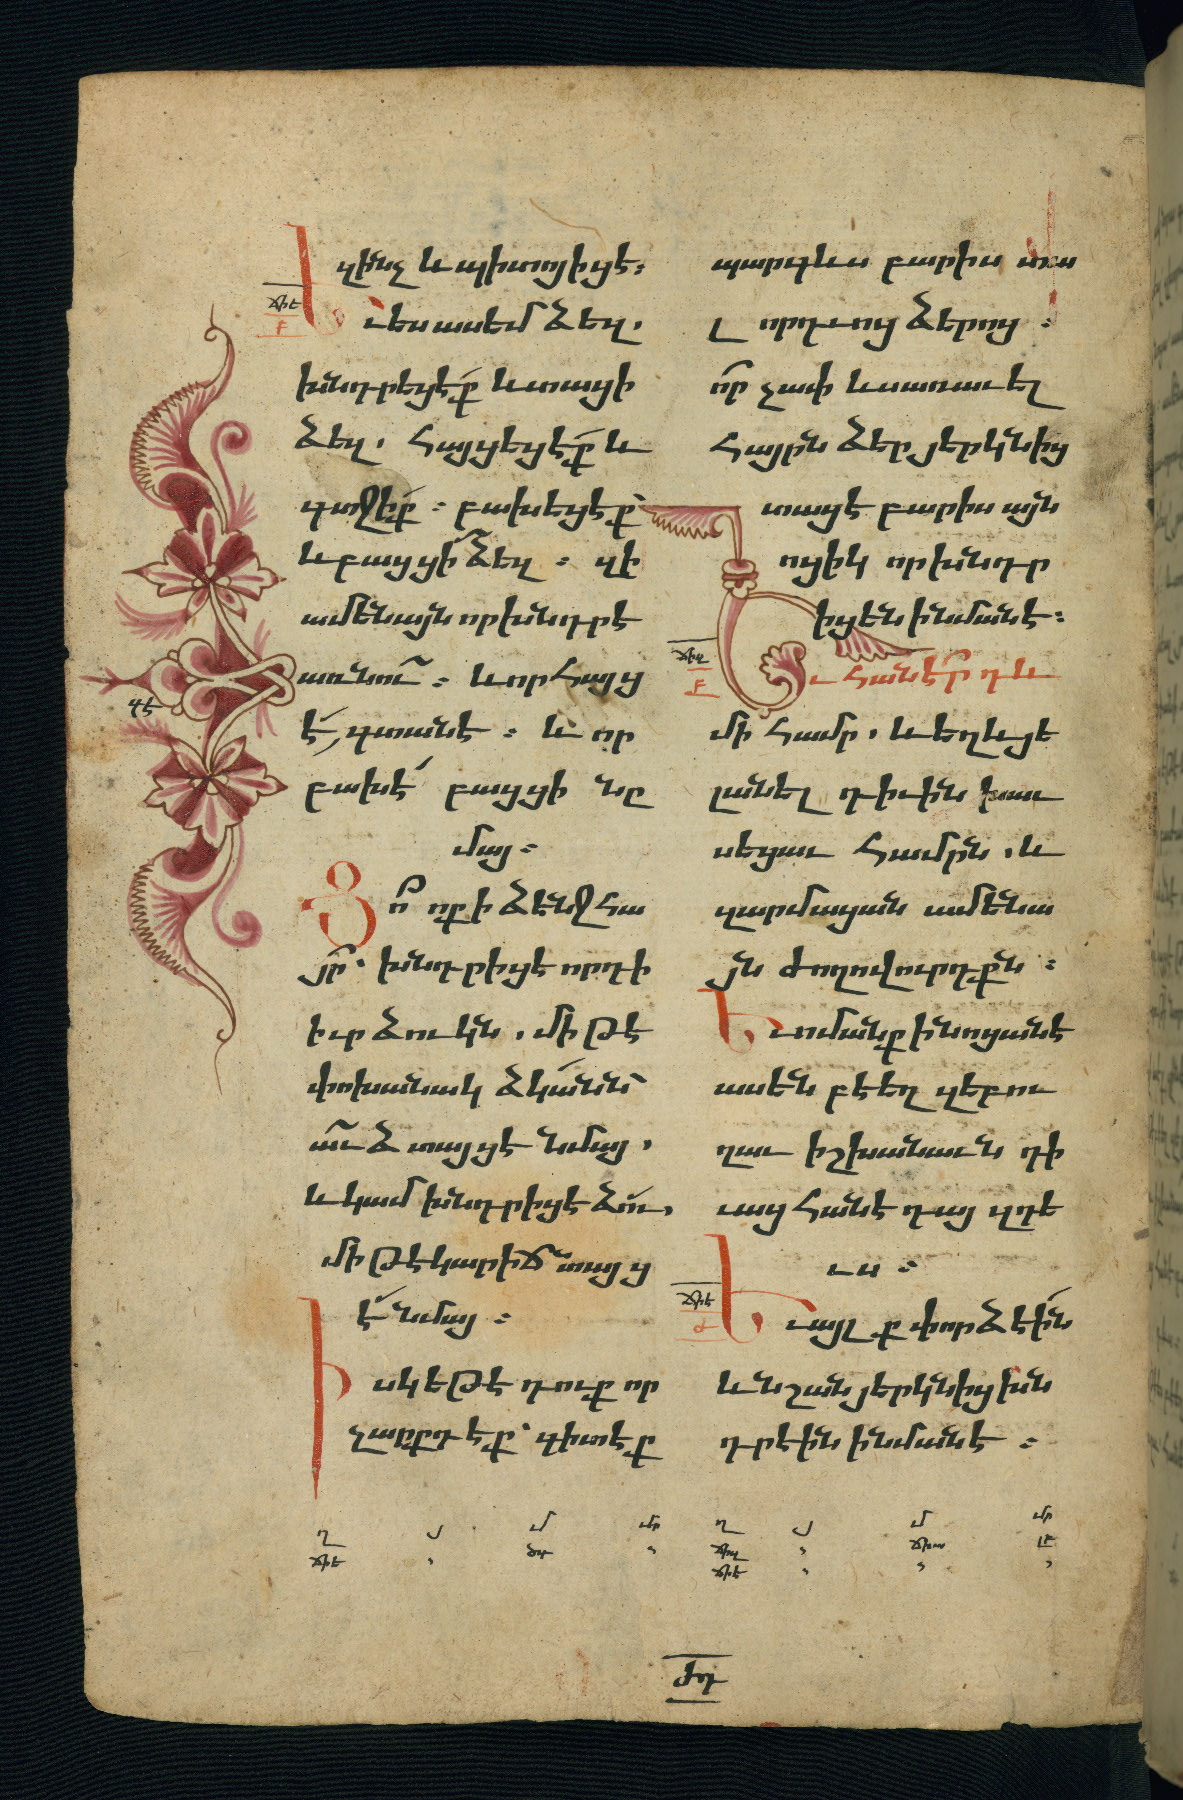 զինչ և պիտոյիցէ։
Եւ ես ասեմ ձեզ.
խնդրեցէք և տացի
ձեզ. հայցեցէք և
գտջիք։ բախեցէք
և բացցի ձեզ։ զի
ամենայն որ խնդրէ
առնու։ և որ հայց
է, գտանէ։ և որ
բախէ բացցի նը
մայ։
Զո՞ ոք ի ձէնջ հա
յր՝ խնդրիցէ որդի
իւր ձուկն. մի թէ
փոխանակ ձկանն
աւձ տայցէ նմայ.
և կամ խնդրիցէ ձու,
մի թէ կարիճ տայց
է նմայ։
Իսկ եթէ դուք որ
չարքդ էք՝ գիտէք
պարգևս բարիս տա
լ որդւոց ձերոց։
ո՞ր չափ ևս առաւել
հայրն ձեր յերկնից
տացէ բարիս այն
ոցիկ որ խնդր
իցեն ի նմանէ։
Եւ հանէր դև
մի համր. և եղև յե
լանել դիւին խաւ
սեցաւ համրն. և
զարմացան ամենա
յն ժողովուրդքն։
Եւ ոմանք ի նոցանէ
ասեն բէեղզեբու
ղաւ իշխանաւն դի
ւաց հանէ դայ զդե
ւս։
Եւ այլք փորձէին
և նշան յերկնից խն
դրէին ի նմանէ։